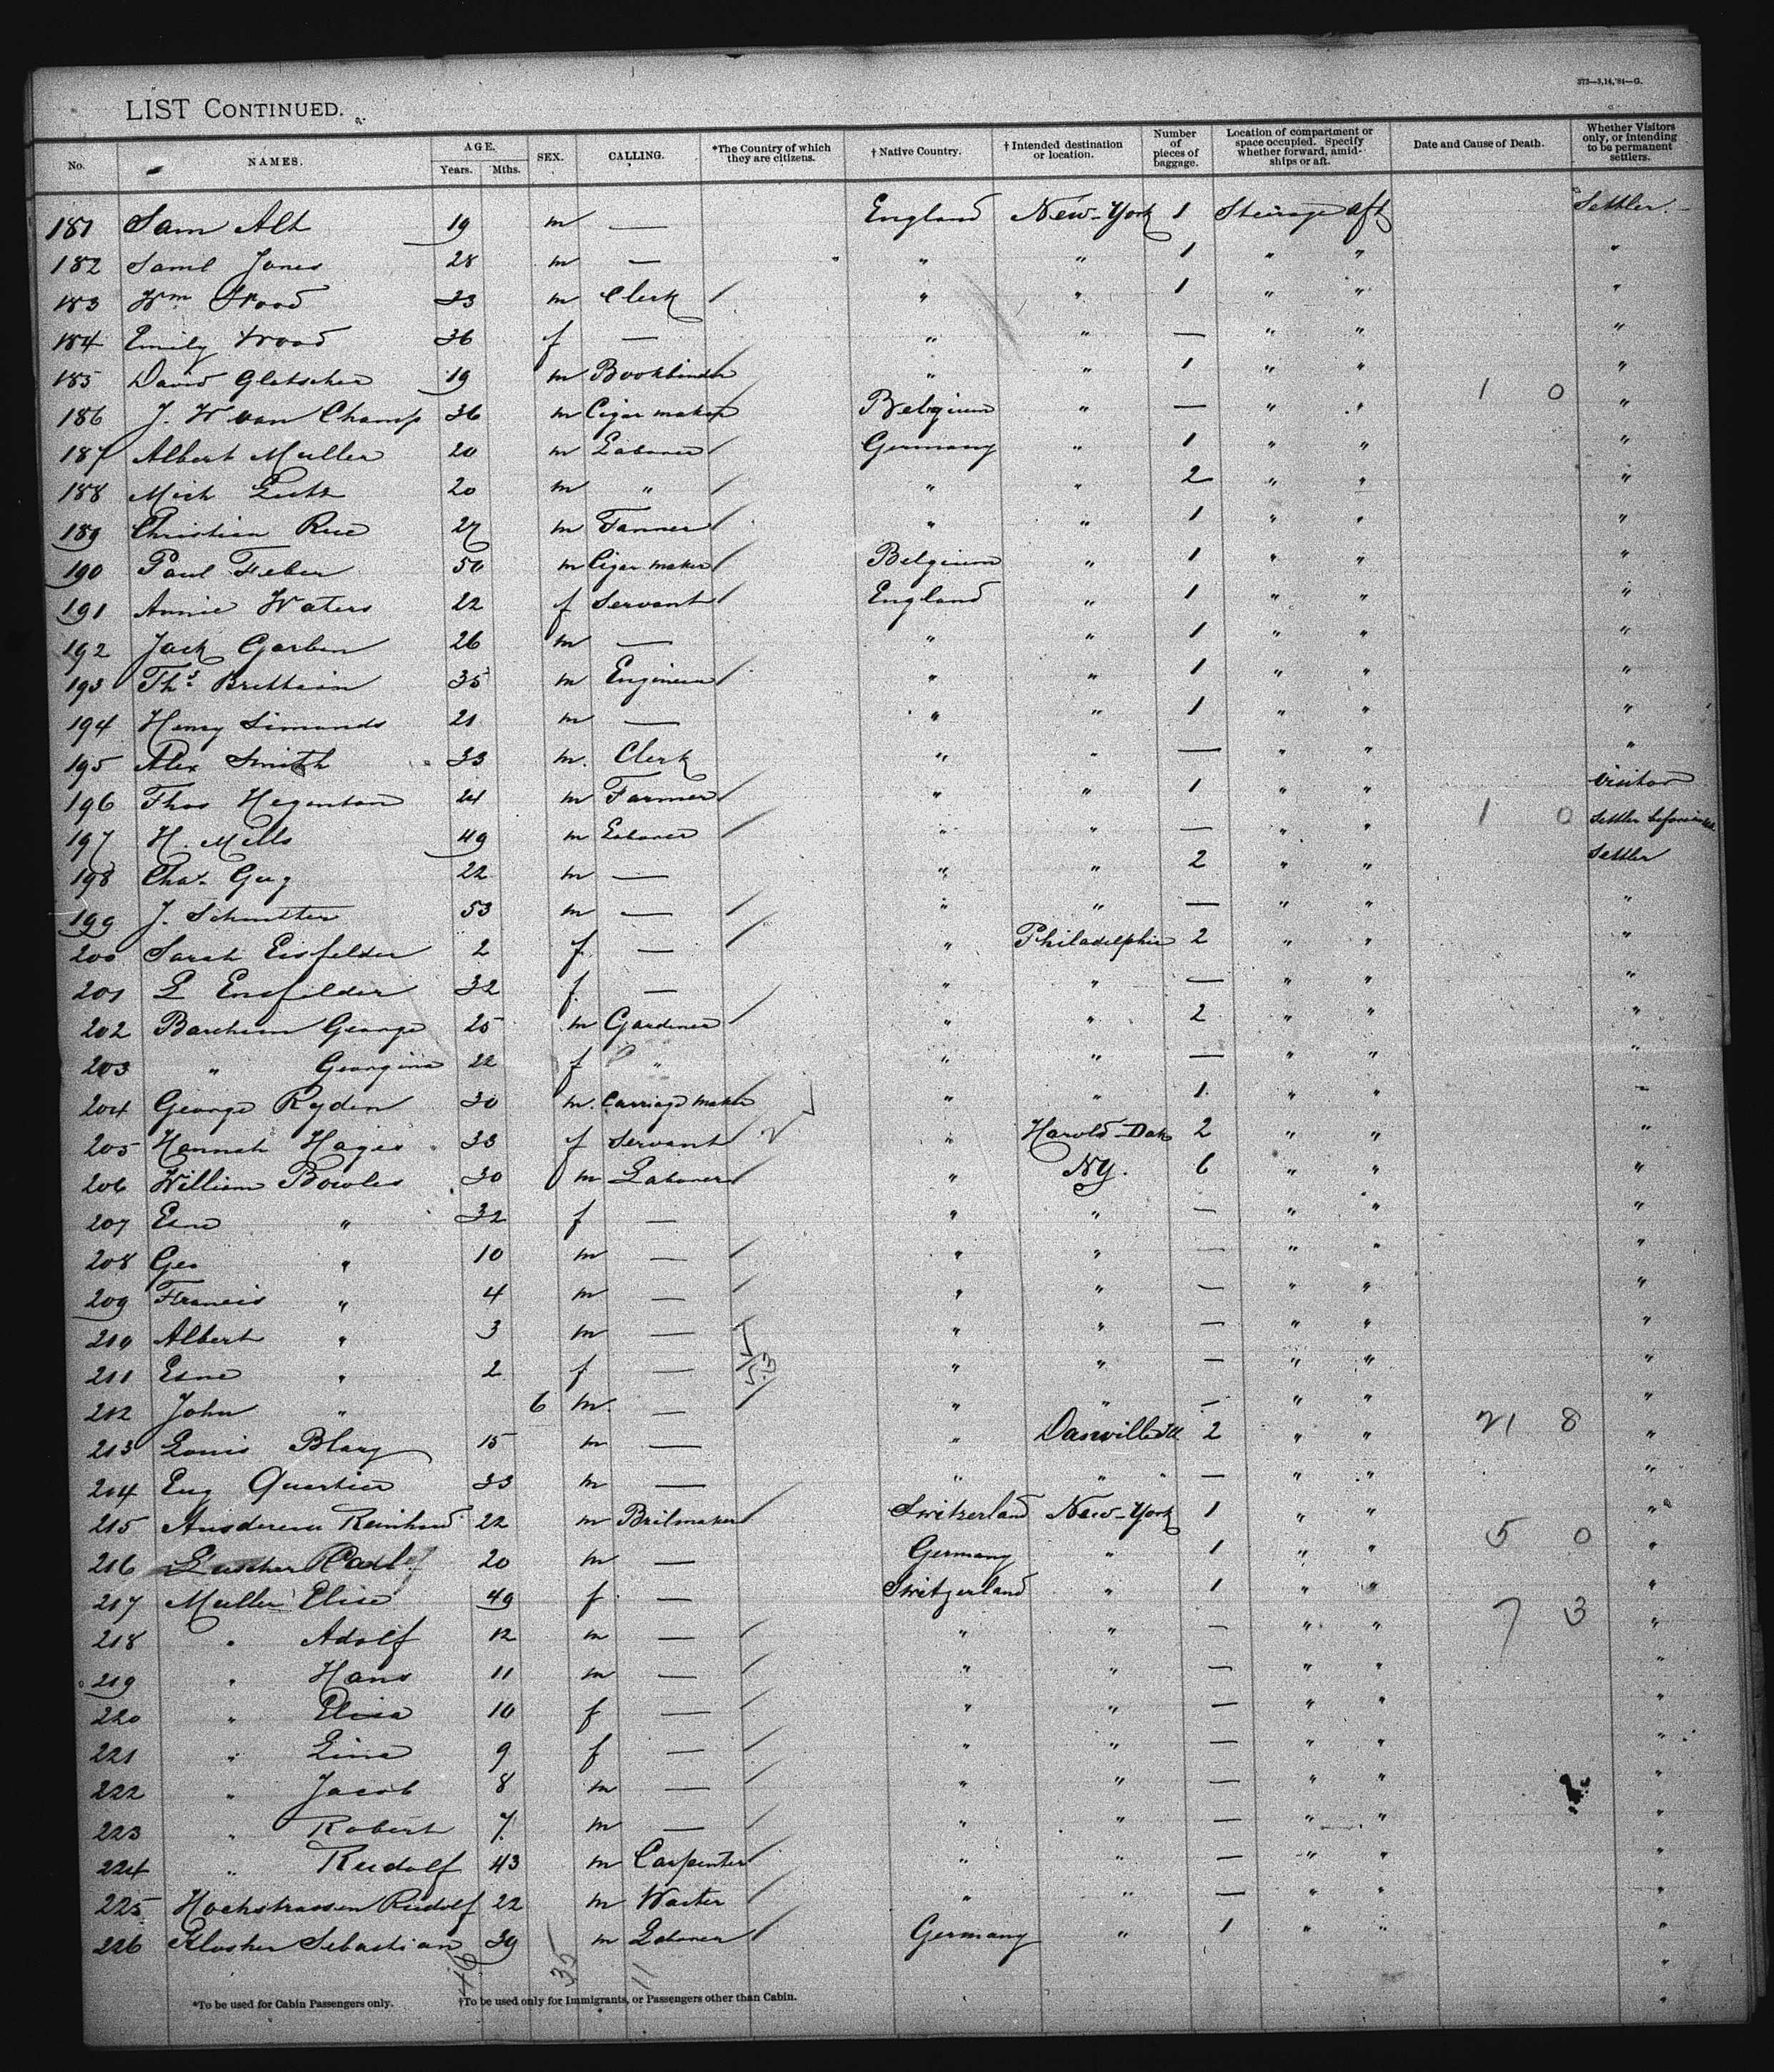 373—3,14,'84—G.
LIST CONTINUED.
No. NAMES. AGE. Years. Mths. SEX. CALLING. *The Country of which they are citizens. † Native Country. † Intended destination or location. Number of pieces of baggage. Location of compartment or space occupied. Specify whether forward, amidships or aft. Date and Cause of Death. Whether Visitors only, or intending to be permanent settlers.
181 Sam Alt 19 m — England New-York 1 Steirage aft Settler.
182 Saml Jones 28 m — " " 1 " " "
183 Wm Wood 23 m Clerk " " 1 " " "
184 Emily Wood 36 f — " " — " " "
185 David Gletscher 19 m Bookbinder " " 1 " " "
186 J. W van Champ 36 m Cigar maker Belgium " — " " 1 0 "
187 Albert Muller 20 m Laborer Germany " 1 " " "
188 Mich 20 m " " " 2 " " "
189 Christian Rue 27 m Tanner " " 1 " " "
190 Paul Feber 50 m Cigar maker Belgium " 1 " " "
191 Annie Waters 22 f Servant England " 1 " " "
192 Jack Garben 26 m — " " 1 " " "
193 Ths Brittain 35 m Engineer " " 1 " " "
194 Henry Simonds 21 m — " " 1 " " "
195 Alex Smith 33 m. Clerk " " — " " "
196 Thos Hegenton 24 m Farmer " " 1 " " Visitor
197 H. Mells 49 m Laborer " " — " " 1 0 Settler before
198 Chas Gug 22 m — " " 2 " " Settler
199 J. Schmitter 53 m — " " — " " "
200 Sarah Eisfelder 2 f — " Philadelphia 2 " " "
201 L Ensfelder 32 f — " " — " " "
202 Barcham George 25 m Gardener " " 2 " " "
203 " Georgina 22 f " " " — " " "
204 George Ryden 30 m. Carriage maker " " 1 " " "
205 Hannah Hages 33 f Servant " Harold-Dak 2 " " "
206 William Bowles 30 m Laborer " NY. 6 " " "
207 Esne " 32 f — " " — " " "
208 Geo " 10 m — " " — " " "
209 Francis " 4 m — " " — " " "
210 Albert " 3 m — " " — " " "
211 Esne " 2 f — " " — " " "
212 John " 6 m. — " " — " " "
213 Louis Blary 15 m — " Danville Ill 2 " " 21 8 "
214 Eug Quartier 33 m — " " — " " "
215 Ausderau Reinhard 22 m Brilmaker Switzerland New-York 1 " " "
216 Luscher Carl 20 m — Germany " 1 " " 5 0 "
217 Muller Elise 49 f — Switzerland " 1 " " "
218 " Adolf 12 m — " " — " " 7 3 "
219 " Hans 11 m — " " — " " "
220 " Elisa 10 f — " " — " " "
221 " Lina 9 f — " " — " " "
222 " Jacob 8 m — " " — " " "
223 " Robert 7 m — " " — " " "
224 " Rudolf 43 m Carpenter " " — " " "
225 Hochstrassen Rudolf 22 m Waiter " " — " " "
226 Kloster Sebastian 39 m Laborer Germany " 1 " " "
46 35 11
*To be used for Cabin Passengers only. †To be used only for Immigrants, or Passengers other than Cabin.